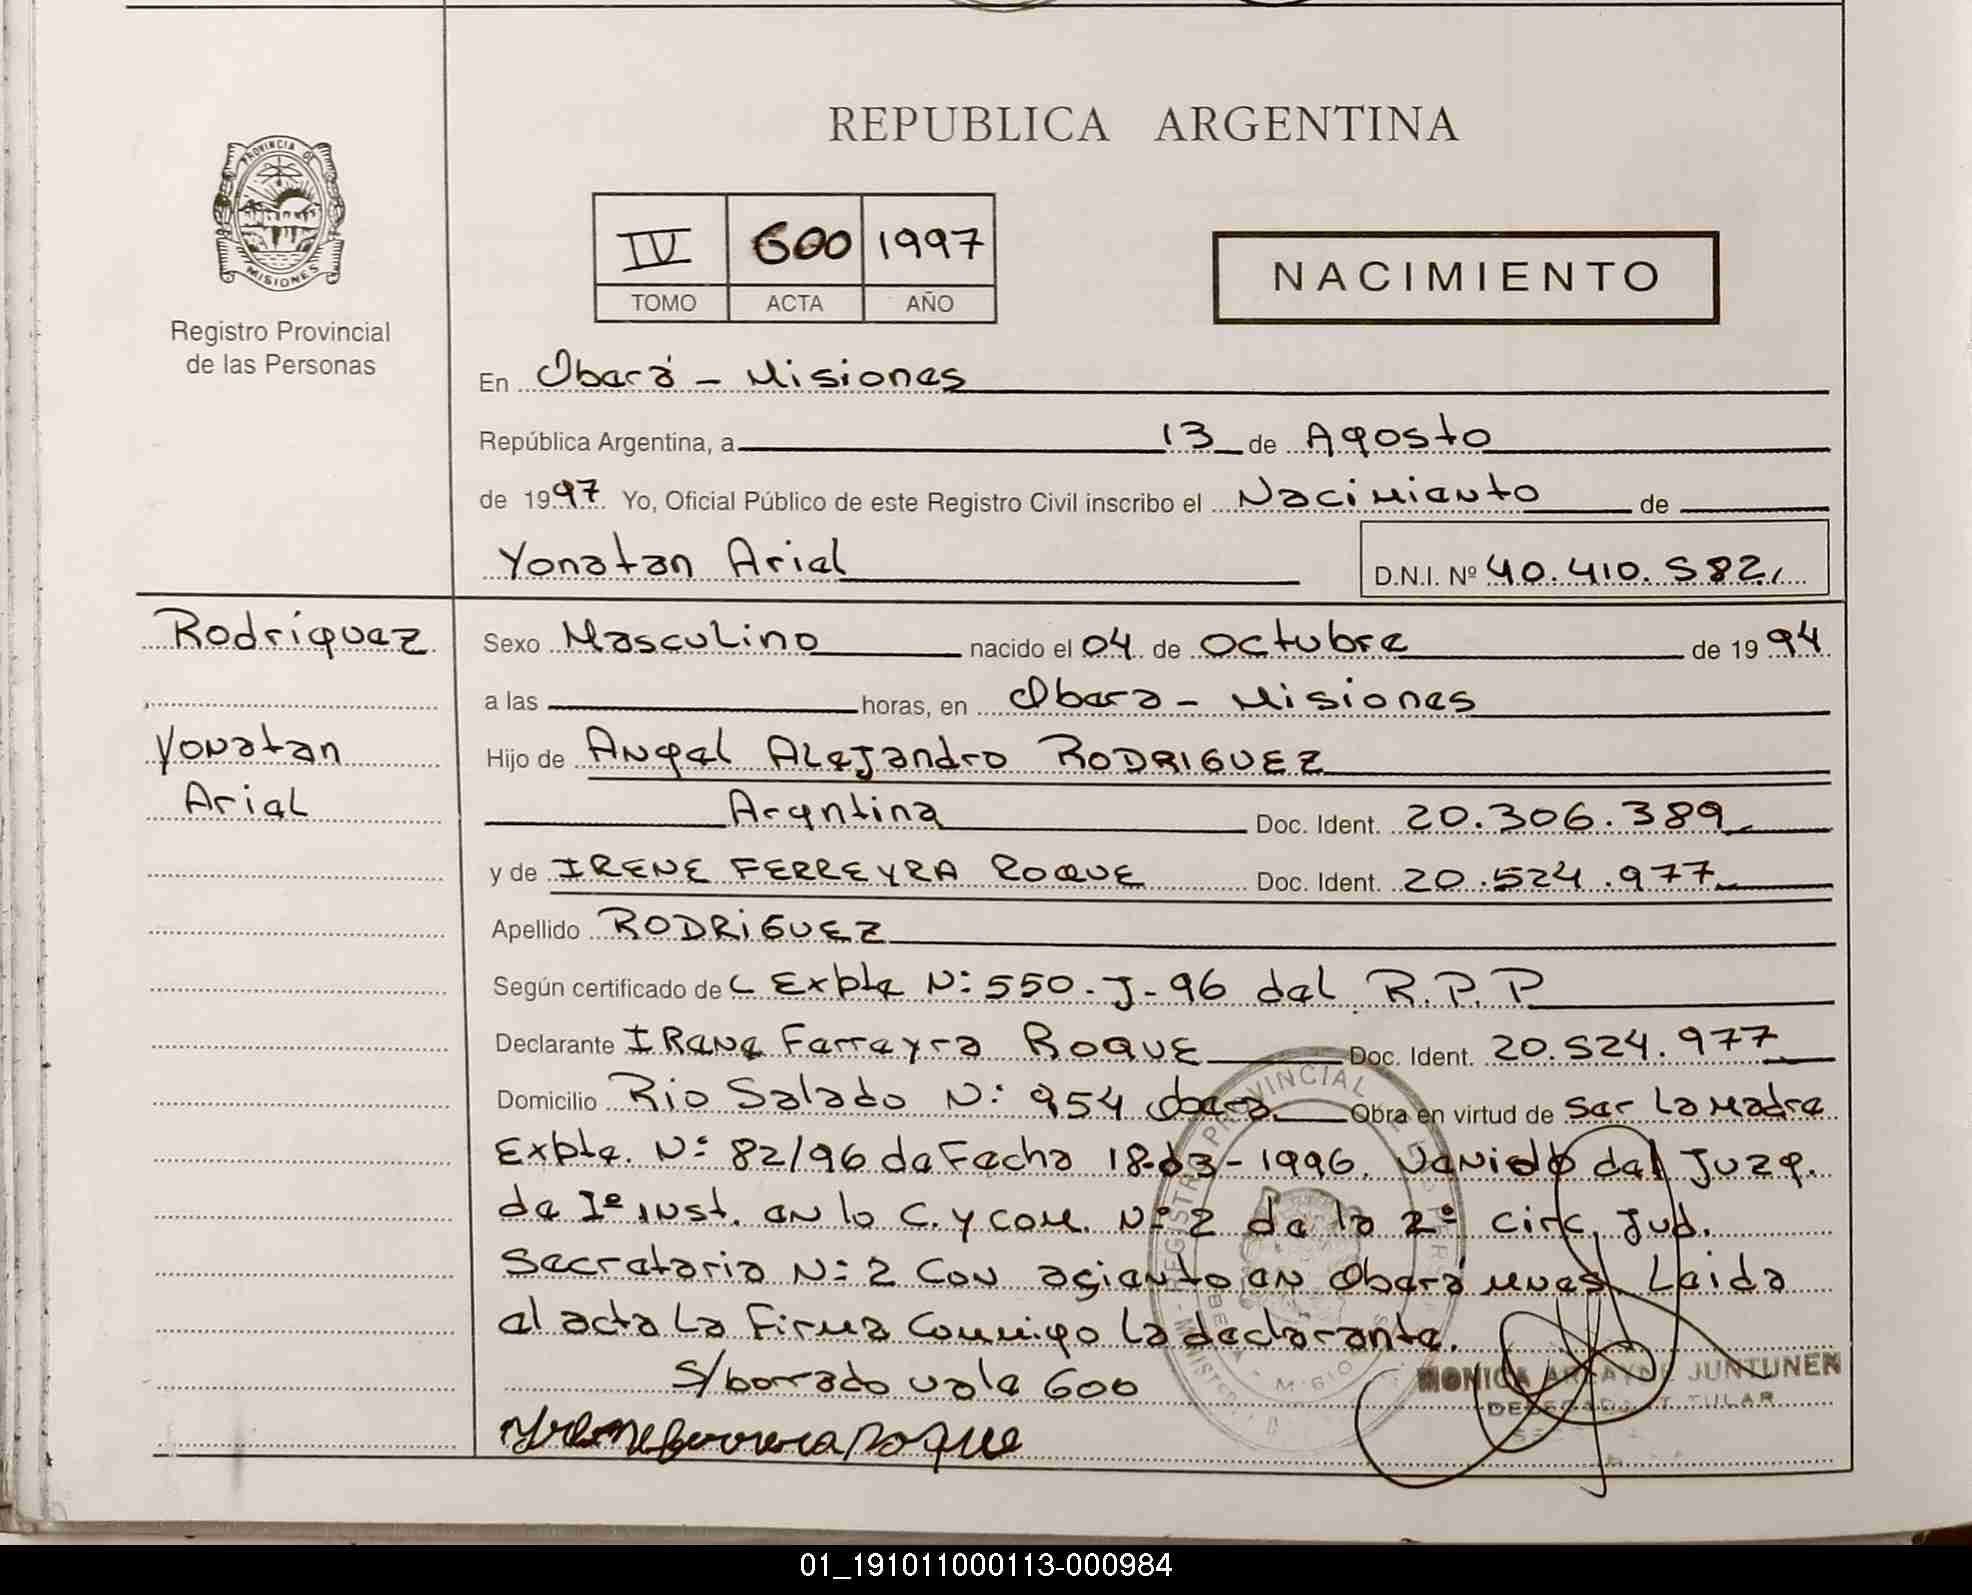 REPUBLICA ARGENTINA
PROVINCIA DE
MISIONES
Registro Provincial
de las Personas
IV 600 1997
TOMO ACTA AÑO
NACIMIENTO
En Oberá - Misiones
República Argentina, a 13 de Agosto
de 1997 Yo, Oficial Público de este Registro Civil inscribo el Nacimiento de
Yonatan Ariel
D.N.I. Nº 40.410.582
Rodríguez
Yonatan
Ariel
Sexo Masculino nacido el 04 de Octubre de 1994
a las horas, en Obera - Misiones
Hijo de Angel Alejandro RODRIGUEZ
Argntina Doc. Ident. 20.306.389
y de IRENE FERREYRA ROQUE Doc. Ident. 20.524.977
Apellido RODRiGUEZ
Según certificado de Expte N: 550-J-96 del R.P.P
Declarante IRene Ferreyra ROQUE Doc. Ident. 20.524.977
Domicilio Rio Salado N: 954 Obera Obra en virtud de ser la Madre
Expte. N: 82/96 de Fecha 18-03-1996. Venido del Juzg.
de Iº inst. en lo C. y Com. Nº 2 de la 2º circ. Jud.
Secretaria N: 2 Con aciento en Oberá Mnes. Leida
el acta La Firma Conmigo la declarante.
s/borrado vale 600
MONICA JUNTUNEN
01_191011000113-000984